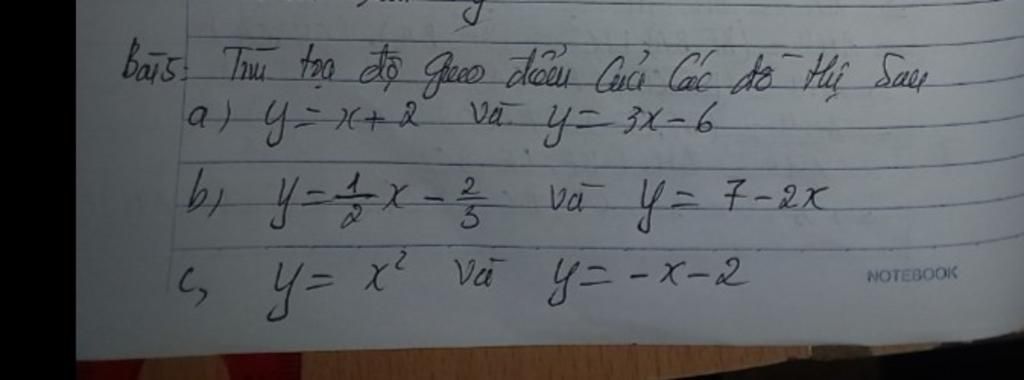 Bài 5: Tìm tọa độ giao điểm của các đồ thị sau
a) y = x + 2 và y = 3x - 6
b, y = 1/2 x - 2/3 và y = 7 - 2x
c, y = x² và y = -x - 2
NOTEBOOK